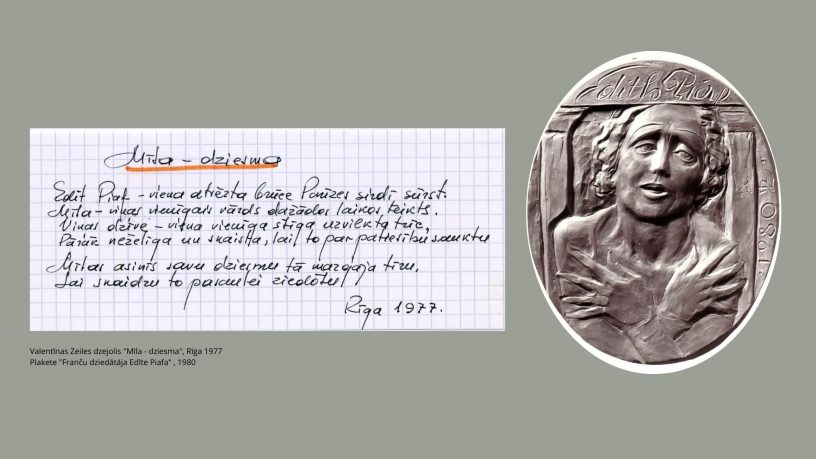 Mīla - dziesma
Edit Piaf - viena atvērta brūce Parīzes sirdī sūrst.
Mīla - viņas vienīgais vārds dažādos laikos teikts.
Viņas dzīve - viena vienīga stīga uzvilkta trīc,
Pārāk nežēlīga un skaista, lai to par patiesību sauktu
Mīlas asinīs savu dziesmu tā mazgāja tīru,
Lai skaidru to pasaulei ziedotu
Rīga 1977.
Valentīnas Zeiles dzejolis "Mīla - dziesma", Rīga 1977
Plakete "Franču dziedātāja Edīte Piafa" , 1980
Edith Piaf
1980